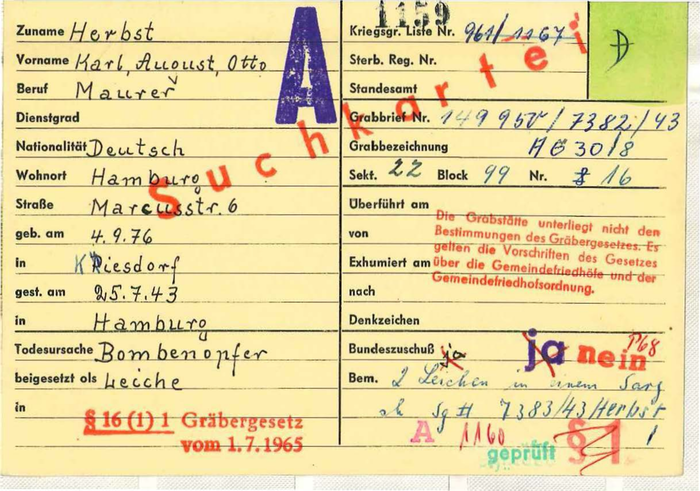 1159
Zuname Herbst
Vorname Karl, August, Otto
Beruf Maurer
Dienstgrad
Nationalität Deutsch
Wohnort Hamburg
Straße Marcusstr. 6
geb. am 4.9.76
in Kriesdorf
gest. am 25.7.43
in Hamburg
Todesursache Bombenopfer
beigesetzt als Leiche
in
§ 16 (1) 1 Gräbergesetz
vom 1.7.1965
A
Suchkartei
Kriegsgr. Liste Nr. 961/1167
D
Sterb. Reg. Nr.
Standesamt
Grabbrief Nr. 149950/7382/43
Grabbezeichnung AE 3018
Sekt. 22 Block 99 Nr. 16
Überführt am
von
Exhumiert am
nach
Die Grabstätte unterliegt nicht den
Bestimmungen des Gräbergesetzes. Es
gelten die Vorschriften des Gesetzes
über die Gemeindefriedhöfe und der
Gemeindefriedhofsordnung.
Denkzeichen
Bundeszuschuß ja ja nein
Bem. 2 Leichen in einem Sarg
7383/43/Herbst
A 1160 1
geprüft § 1